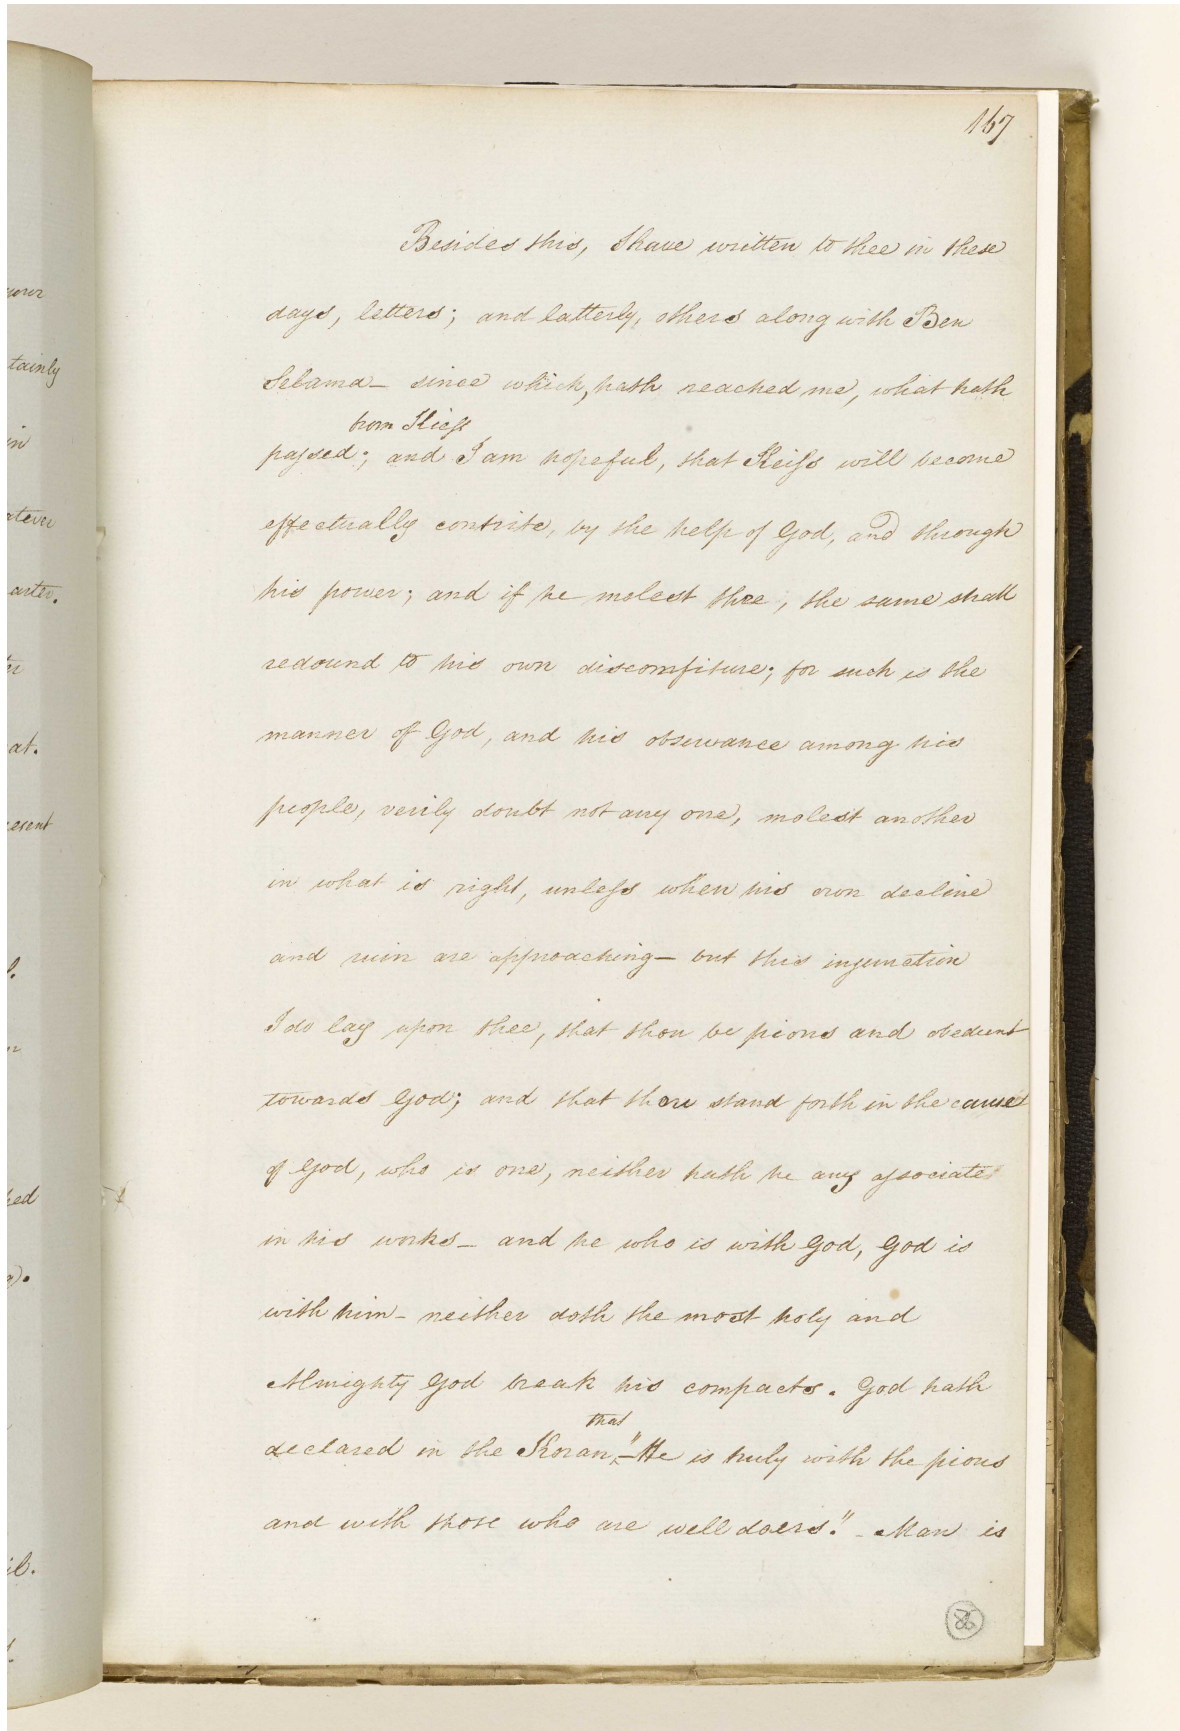 167
Besides this, I have written to thee in these
days, letters; and latterly, others along with Ben
Selama — since which, hath reached me, what hath
from Kiess
passed; and I am hopeful, that Keiss will become
effectually contrite, by the help of God, and through
his power; and if he molest thee, the same shall
redound to his own discomfiture; for such is the
manner of God, and his observance among his
people, verily doubt not any one, molest another
in what is right, unless when his own decline
and ruin are approaching — but this injunction
I do lay upon thee, that thou be pious and obedient
towards God; and that thou stand forth in the cause
of God, who is one, neither hath he any associate
in his works — and he who is with God, God is
with him — neither doth the most holy and
Almighty God break his compacts. God hath
that
declared in the Koran, — "He is truly with the pious
and with those who are well doers." — Man is
86
your
tainly
in
arter.
at.
esent